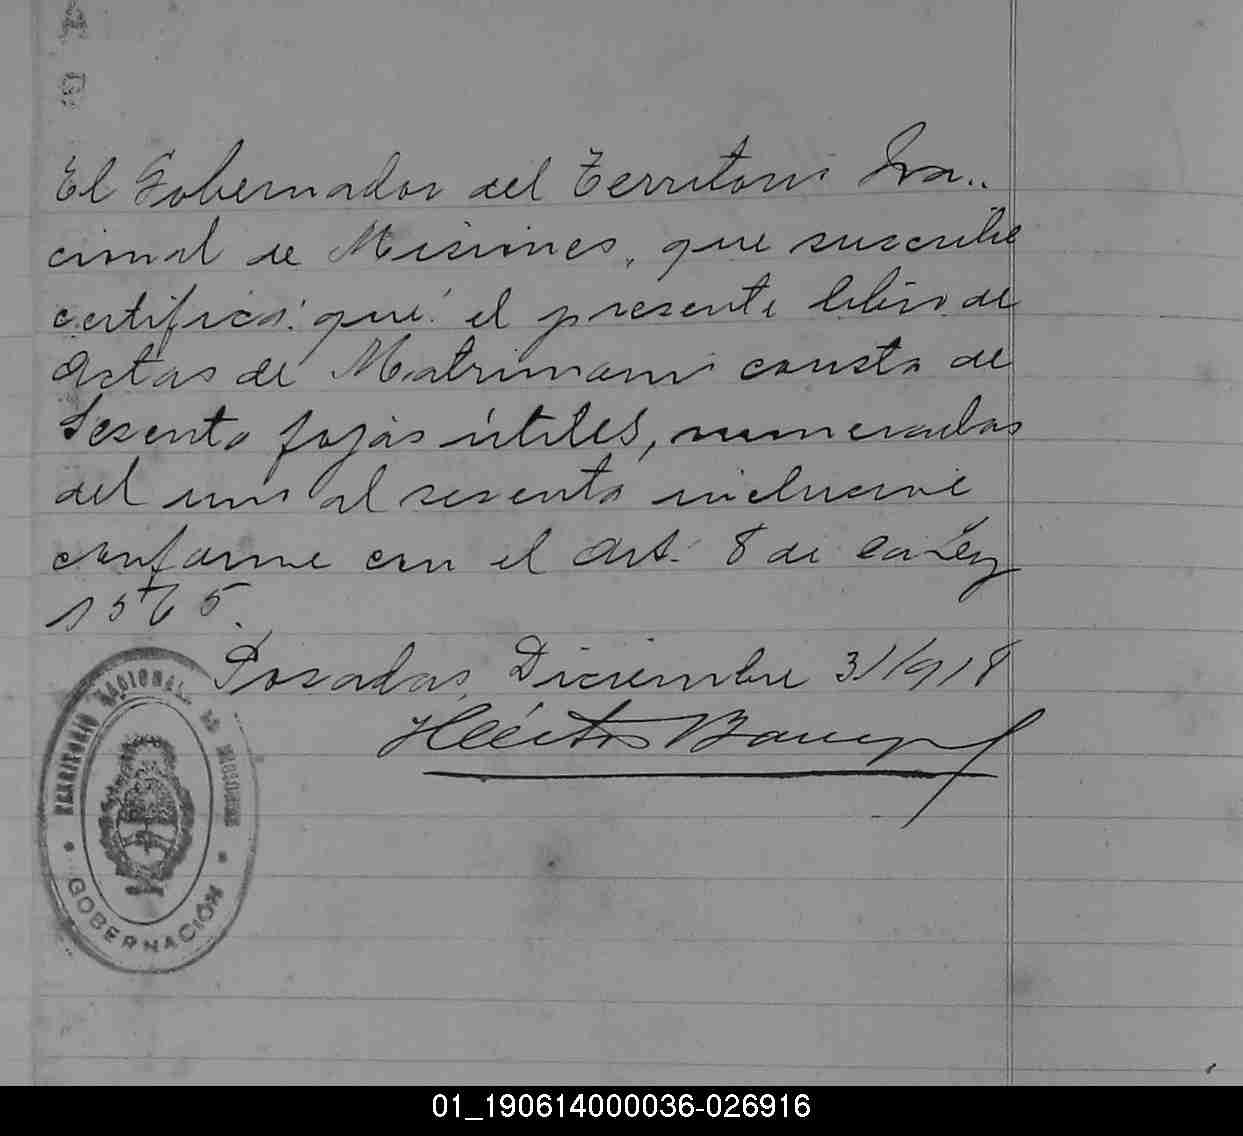 El Gobernador del Territorio Na..
cional de Misiones, que suscribe
certifica: que el presente libro de
Actas de Matrimonio consta de
Sesenta fojas útiles, numeradas
del uno al sesenta inclusive
conforme con el Art. 8 de la Ley
1565.
Posadas, Diciembre 31/918
Héctor
TERRITORIO NACIONAL DE MISIONES
GOBERNACIÓN
01_190614000036-026916